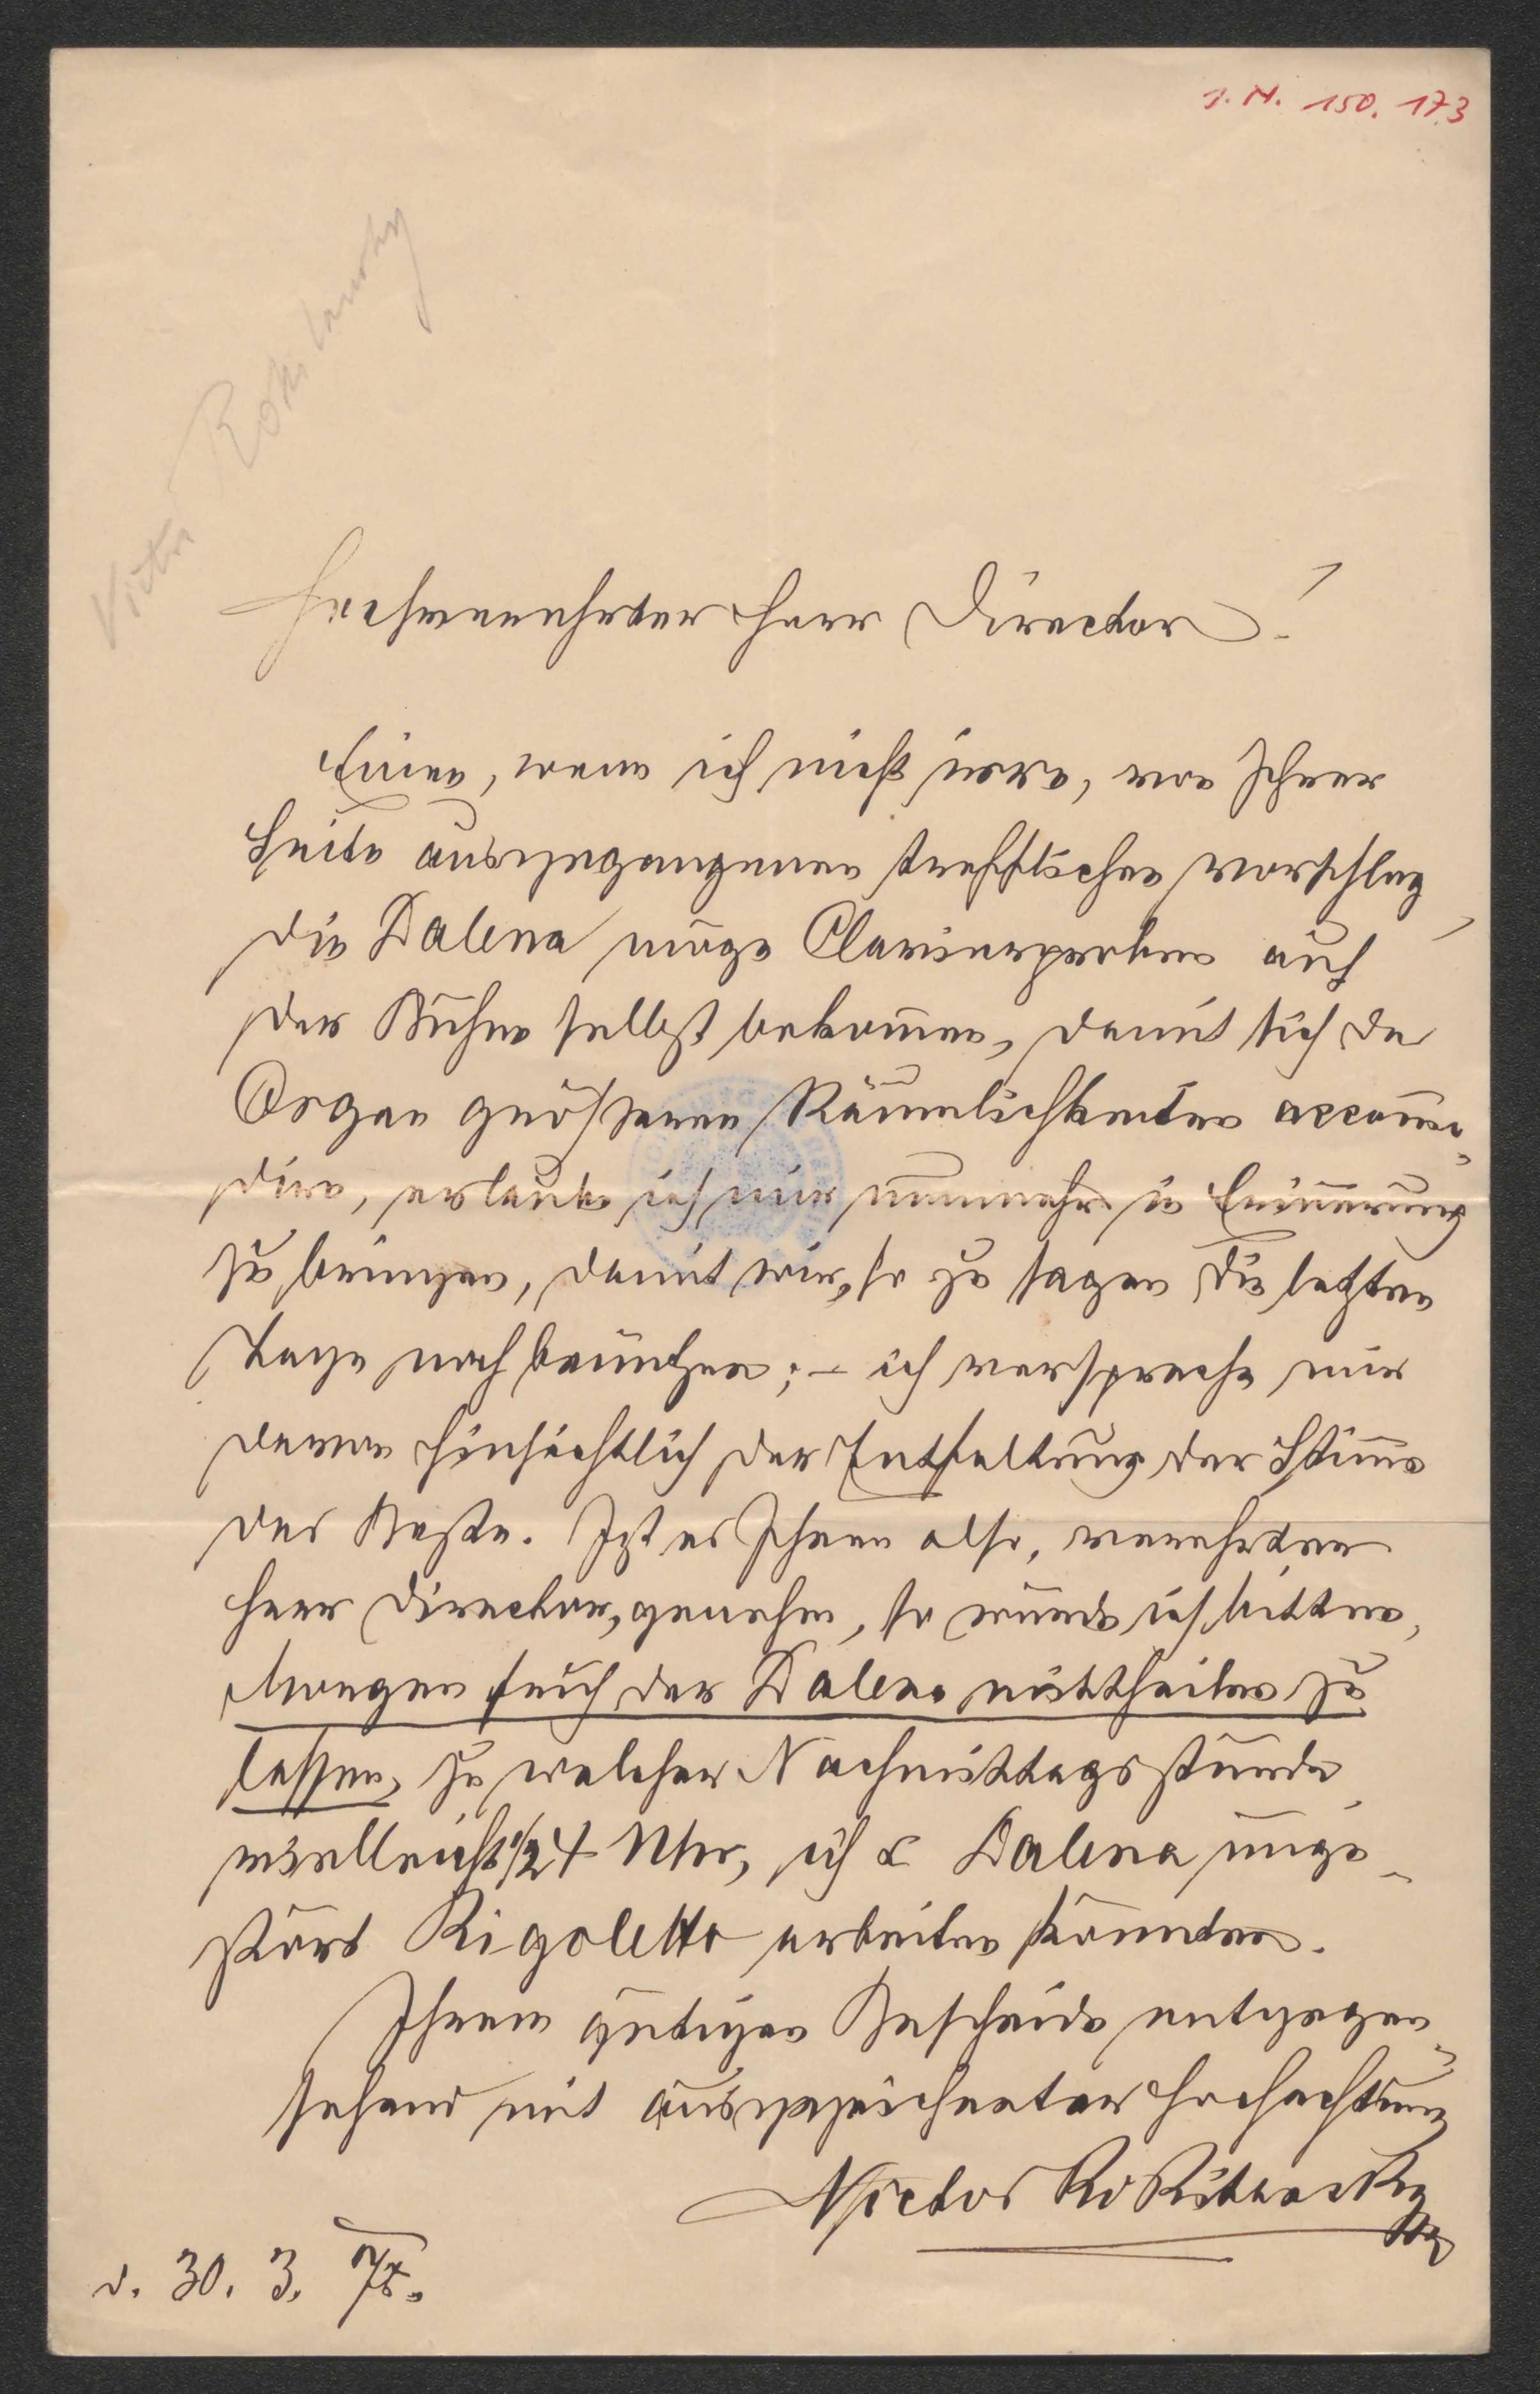 I. N. 150.173
Victor Rokitansky
Hochverehrter Herr Director!
Einen, wenn ich nicht irre, von Ihrer
Seite ausgegangenen trefflichen Vorschlag,
die Dalena möge Clavierproben auf
der Bühne selbst bekom̅en, damit sich das
Organ größeren Räumlichkeiten accom̅o-
dire, erlaube ich mir nunmehr in Erin̅erung
zu bringen, damit wir, so zu sagen die letzten
Tage noch benützen; – ich verspreche mir
davon hinsichtlich der Entfaltung der Stim̅e
das Beste. Ist es Ihnen also, verehrter
Herr Director, genehm, so würde ich bitten,
Morgen früh der Dalena mittheilen zu
lassen, zu welcher Nachmittagsstunde
vielleicht 1/2 4 Uhr, ich & Dalena unge-
stört Rigoletto arbeiten könnten.
Ihrem gütigen Bescheide entgegen-
sehend mit ausgezeichneter Hochachtung
Victor Rokitansky
d. 30. 3. 78.